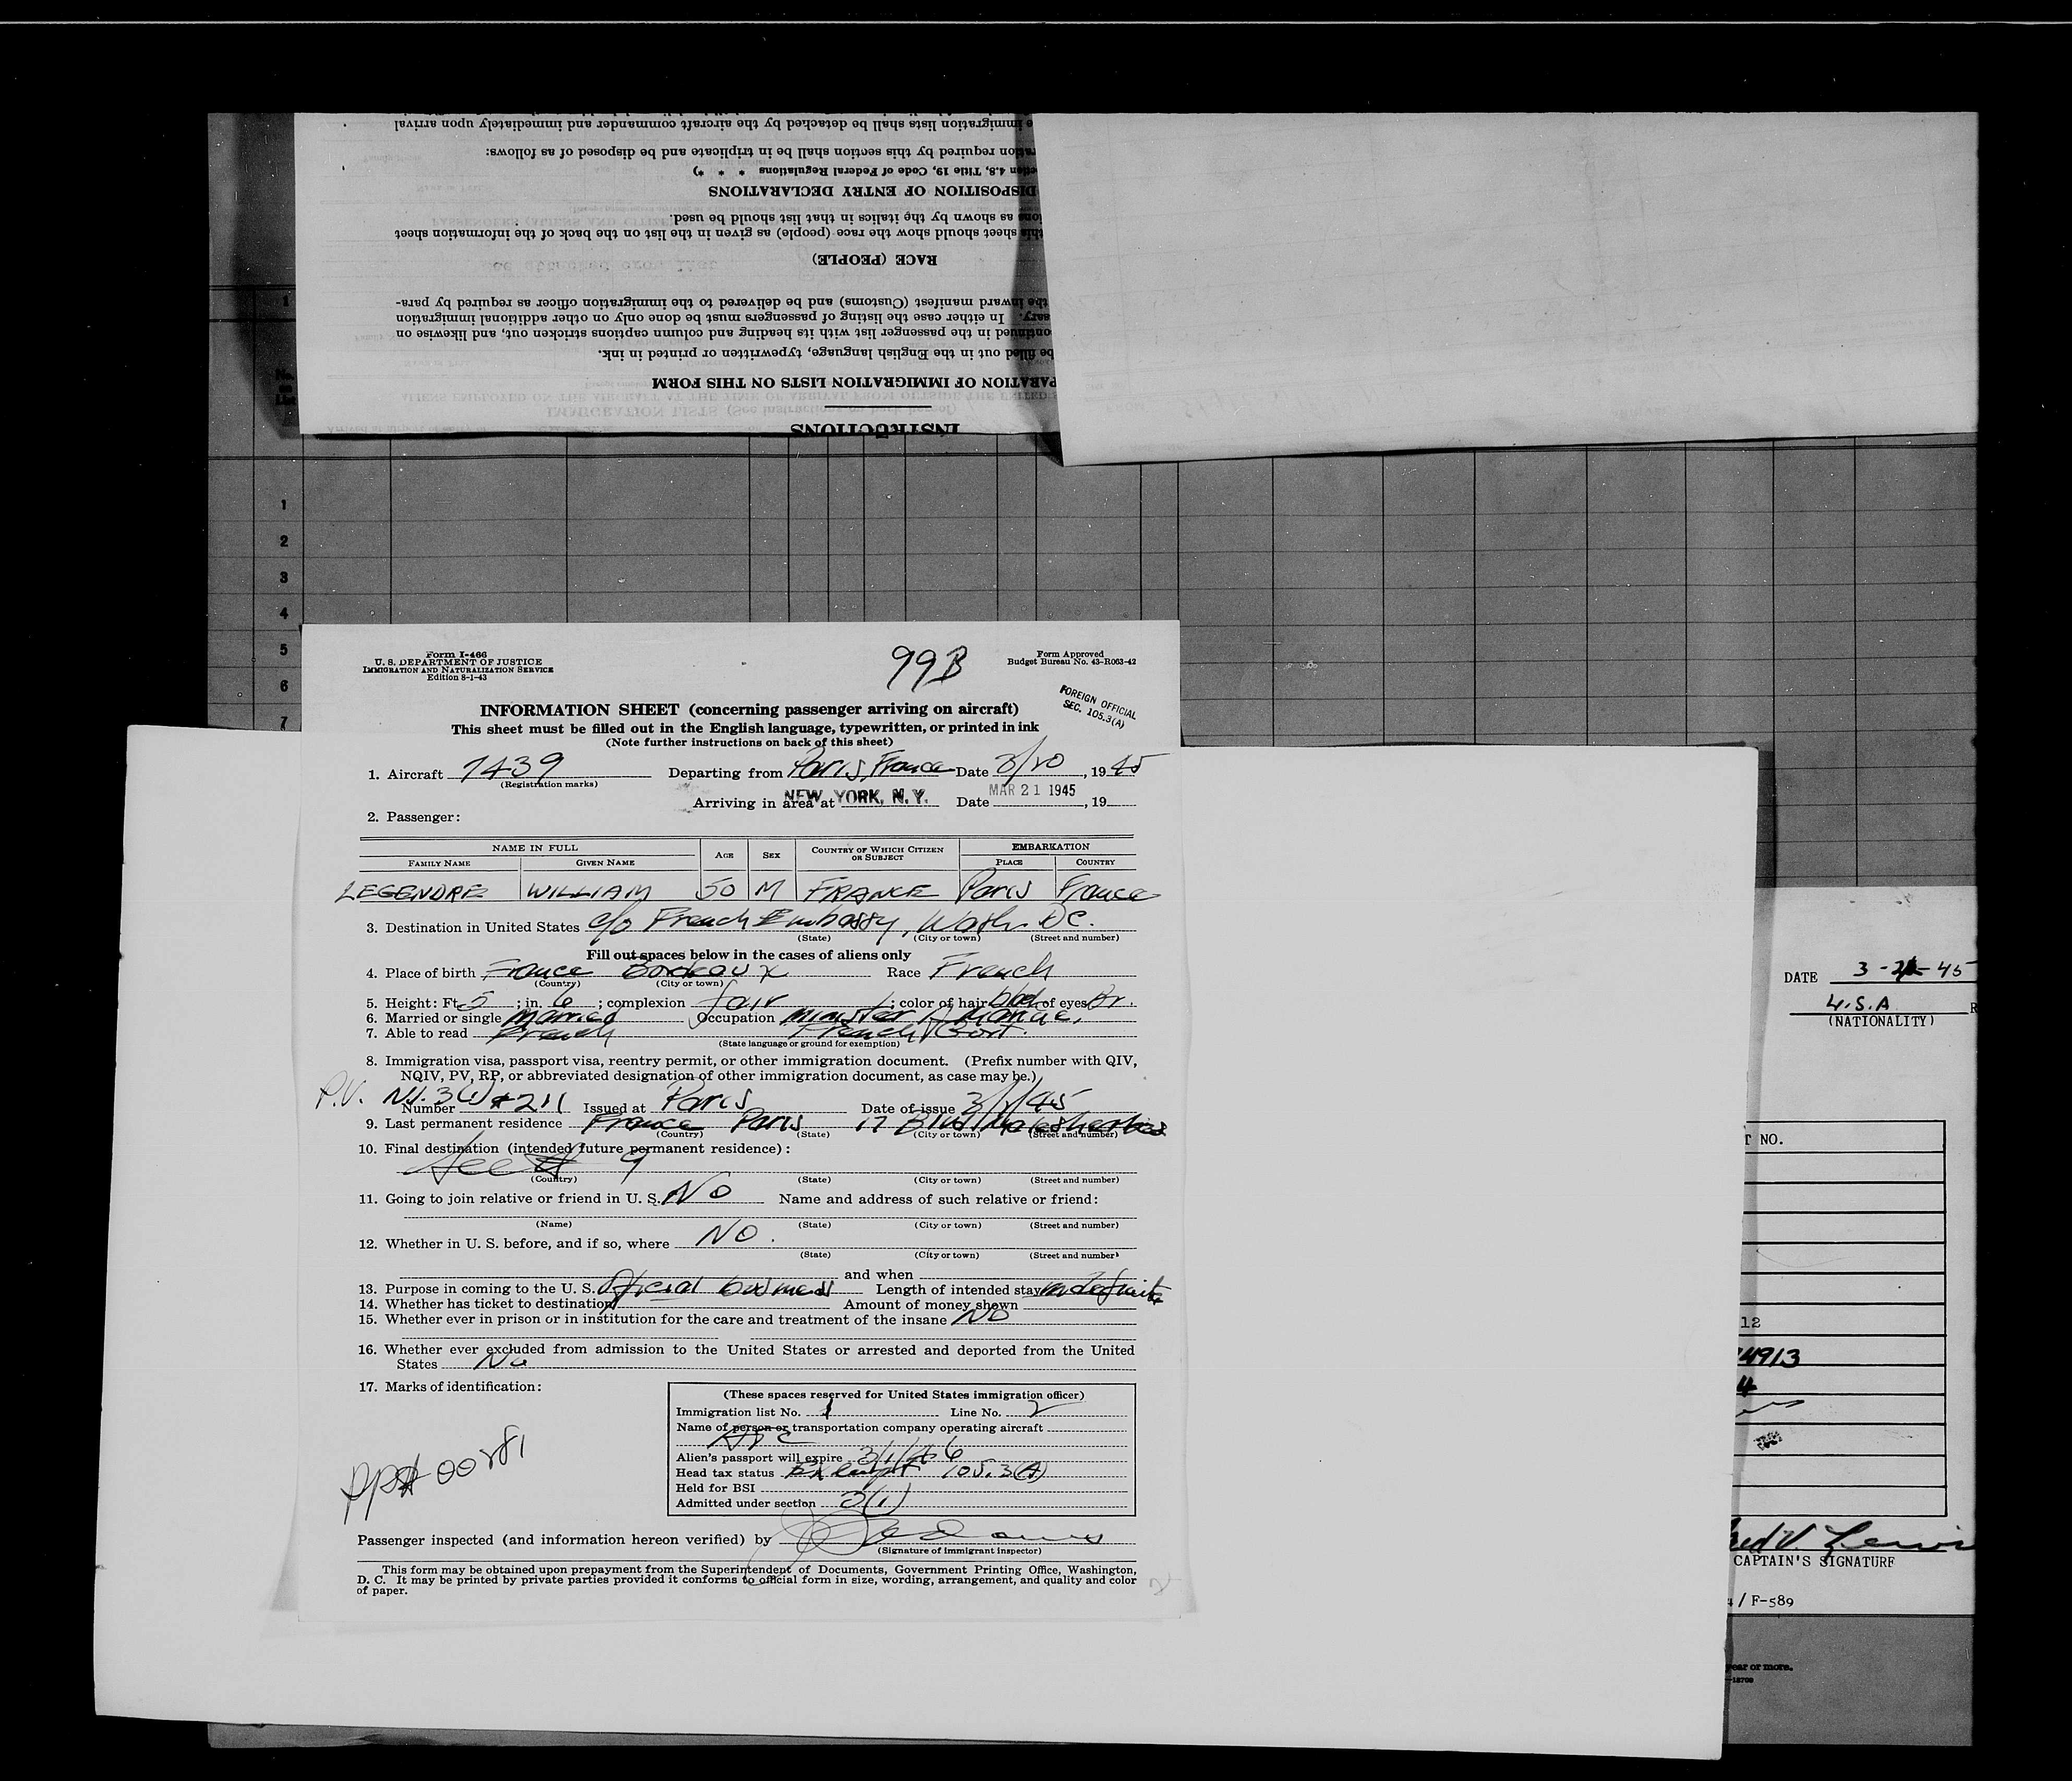 e immigration lists shall be detached by the aircraft commander and immediately upon arrival
ration required by this section shall be in triplicate and be disposed of as follows:
ction 4.8, Title 19, Code of Federal Regulations * * *)
DISPOSITION OF ENTRY DECLARATIONS
ions as shown by the italics in that list should be used.
this sheet should show the race (people) as given in the list on the back of the information sheet
RACE (PEOPLE)
the inward manifest (Customs) and be delivered to the immigration officer as required by para-
sary. In either case the listing of passengers must be done only on other additional immigration
ontinued in the passenger list with its heading and column captions stricken out, and likewise on
be filled out in the English language, typewritten or printed in ink.
PARATION OF IMMIGRATION LISTS ON THIS FORM
INSTRUCTIONS
1
1
2
3
4
5
6
7
Form I-466
U. S. DEPARTMENT OF JUSTICE
IMMIGRATION AND NATURALIZATION SERVICE
Edition 8-1-43
99B
Form Approved
Budget Bureau No. 43-R063-42
FOREIGN OFFICIAL
SEC. 105.3(A)
INFORMATION SHEET (concerning passenger arriving on aircraft)
This sheet must be filled out in the English language, typewritten, or printed in ink
(Note further instructions on back of this sheet)
1. Aircraft 7439 Departing from Paris, France Date 3/20, 1945
(Registration marks)
Arriving in area at NEW YORK, N. Y. Date MAR 21 1945, 19
2. Passenger:
NAME IN FULL AGE SEX COUNTRY OF WHICH CITIZEN OR SUBJECT EMBARKATION
FAMILY NAME GIVEN NAME PLACE COUNTRY
LEGENDRE WILLIAM 50 M FRANCE Paris France
3. Destination in United States c/o French Embassy, Wash. DC.
(State) (City or town) (Street and number)
Fill out spaces below in the cases of aliens only
4. Place of birth France Bordeaux Race French
(Country) (City or town)
5. Height: Ft. 5; in. 6; complexion fair; color of hair blk; of eyes Br.
6. Married or single Married Occupation Minister
7. Able to read French French Govt.
(State language or ground for exemption)
8. Immigration visa, passport visa, reentry permit, or other immigration document. (Prefix number with QIV,
NQIV, PV, RP, or abbreviated designation of other immigration document, as case may be.)
P.V. N.I. 3(1) #211
Number Issued at Paris Date of issue 3/1/45
9. Last permanent residence France Paris 17 Blvd Malesherbes
(Country) (State) (City or town) (Street and number)
10. Final destination (intended future permanent residence):
See # 9
(Country) (State) (City or town) (Street and number)
11. Going to join relative or friend in U. S. No Name and address of such relative or friend:
(Name) (State) (City or town) (Street and number)
12. Whether in U. S. before, and if so, where NO.
(State) (City or town) (Street and number)
and when
13. Purpose in coming to the U. S. Oficial business Length of intended stay indefinite
14. Whether has ticket to destination Amount of money shown
15. Whether ever in prison or in institution for the care and treatment of the insane NO
16. Whether ever excluded from admission to the United States or arrested and deported from the United
States No
17. Marks of identification:
PP# 00281
(These spaces reserved for United States immigration officer)
Immigration list No. 1 Line No. 2
Name of person or transportation company operating aircraft
ATC
Alien's passport will expire 3/1/46
Head tax status Exempt 105.3(A)
Held for BSI
Admitted under section 3(1)
Passenger inspected (and information hereon verified) by
(Signature of immigrant inspector)
This form may be obtained upon prepayment from the Superintendent of Documents, Government Printing Office, Washington,
D. C. It may be printed by private parties provided it conforms to official form in size, wording, arrangement, and quality and color
of paper.
DATE 3-21-45
U.S.A R
(NATIONALITY)
T NO.
12
4913
4
red V. Lewis
CAPTAIN'S SIGNATURE
/ F-589
year or more.